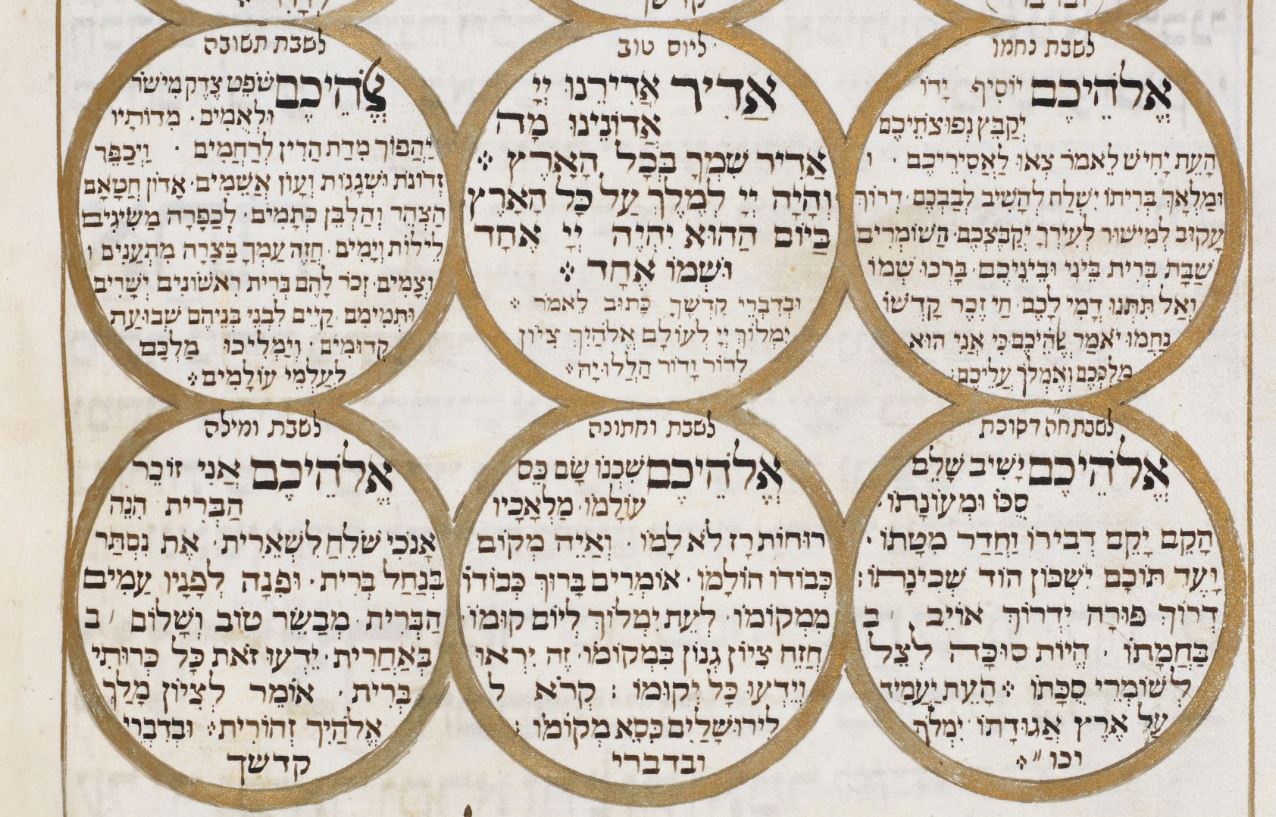 ובדברי
קדשך
לשבת נחמו
אלהיכם יוסיף ידו
יקבץ נפוצתיכם
העת יחיש לאמר צאו לאסיריכם · ו
ומלאך בריתו ישלח להשיב לבבכם · דרוך
עקוב למישור לעירך יקבצכם · השומרים
שבת ברית ביני וביניכם · ברכו שמו
ואל תתנו דמי לכם · חי זכר קדשו
נחמו יאמר אלהיכם כי אני הוא
מלככם ואמלך עליכם:
ליום טוב
אדיר אדירנו יי
אדונינו מה
אדיר שמך בכל הארץ
והיה יי למלך על כל הארץ
ביום ההוא יהיה יי אחד
ושמו אחד
ובדברי קדשך כתוב לאמר
ימלוך יי לעולם אלהיך ציון
לדור ודור הללויה
לשבת תשובה
אלהיכם שפט צדק מישור
ולאמים · מדותיו
יהפוך מדת הדין לרחמים · ויכפר
זדונות ושגגות ועון אשמים · אדון חטאם
הצהר והלבן כתמים · לכפרה משיגים
לילות וימים · חזה עמך בצרה מתענים ו
וצמים · זכר להם ברית ראשונים ישרים
ותמימם קיים לבני בניהם שבועת
קדומים · וימליכו מלכם
לעלמי עולמים
לשבת חה דסוכת
אלהיכם ישיב שלם
סכו ומעונתו ·
הקם יקם דבירו וחדר מטתו ·
ועד תוכם ישכון הוד שכינתו:
דרוך פורה ידרוך אוייב ב
בחמתו · היות סוכה לצל
לשומרי סכתו העת יעמיד
על ארץ אגודתו ימלך
וכו"
לשבת וחתונה
אלהיכם שכנו שם כס
עולמו מלאכיו
רוחות רז לא למו · ואיה מקום
כבודו הולמו · אומרים ברוך כבודו
ממקומו · לעת ימלוך ליום קומו ·
חזה ציון גנון במקומו · זה יראו
וידעו כל וקומו : קרא ל
לירושלים כסא מקומו :
ובדברי
לשבת ומילה
אלהיכם אני זוכר
הברית הנה
אנכי שלח לשארית · את נסתר
בנחל ברית · ופנה לפניו עמים
הברית · מבשר טוב ושלום ב
באחרית · ידעו זאת כל כרותי
ברית · אומר לציון מלך
אלהיך זהורית ובדברי
קדשך